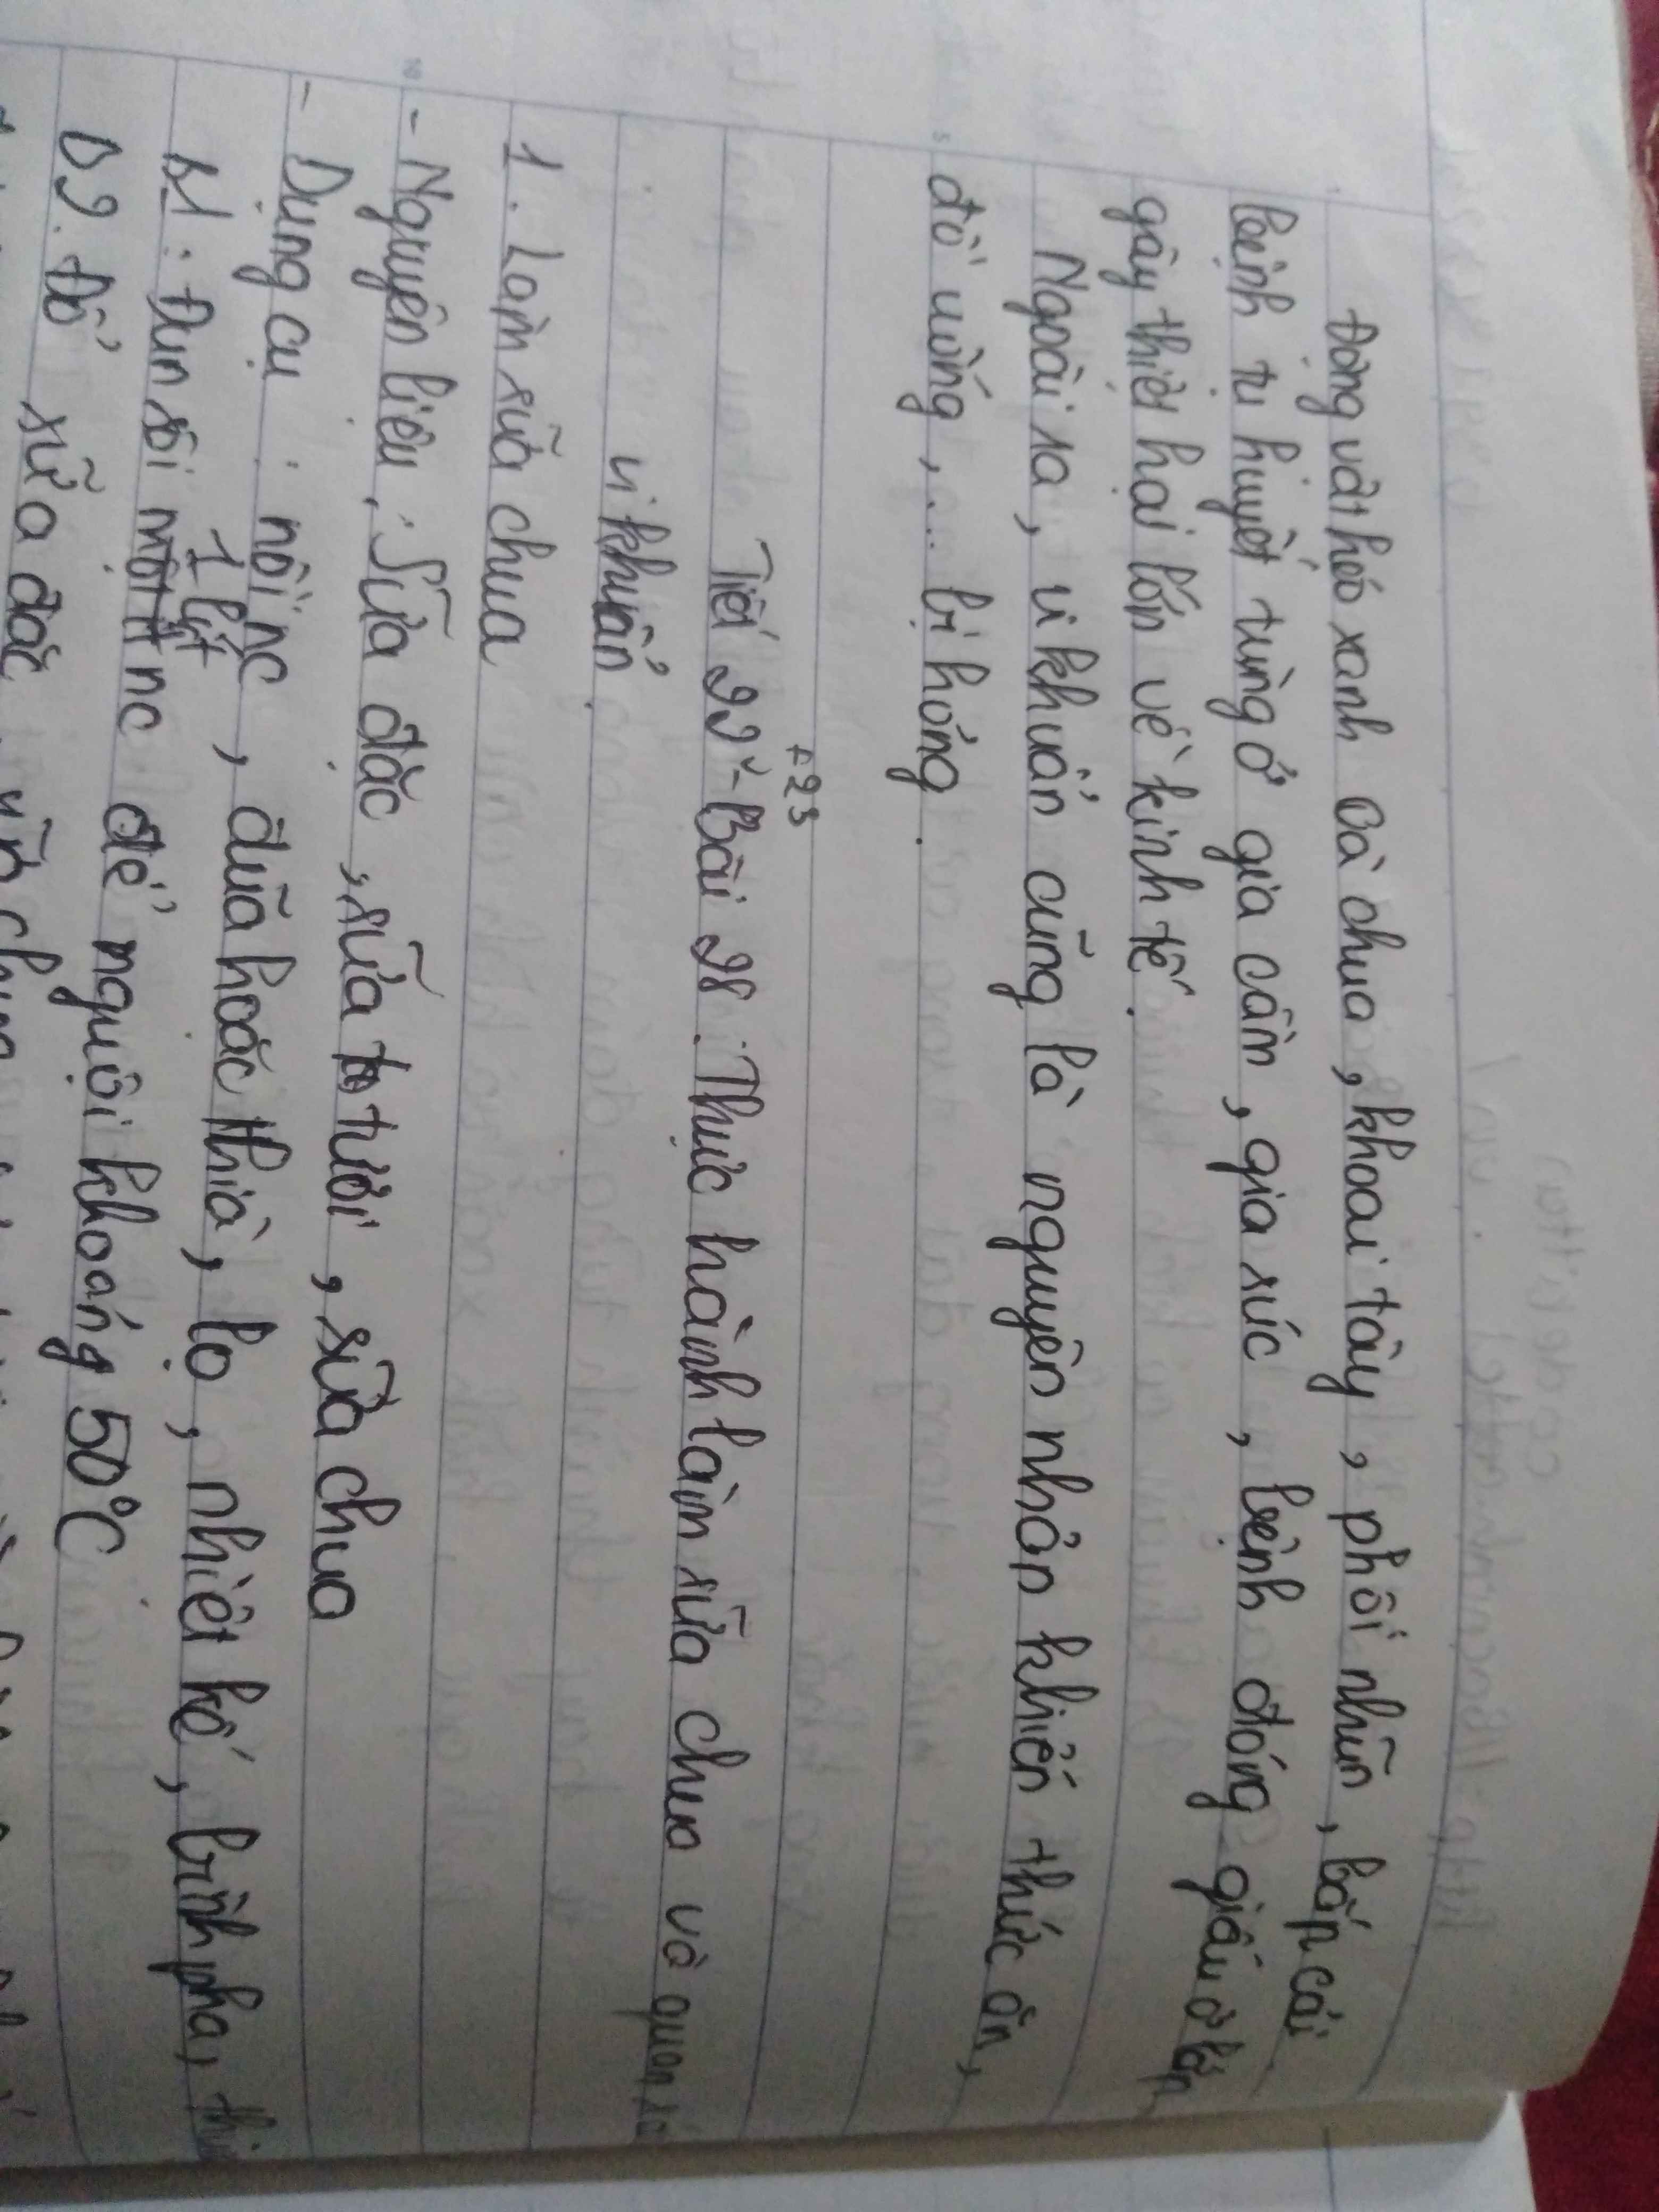 Động vật héo xanh cà chua, khoai tây, phổi nhũn, bắp cải
bệnh tụ huyết trùng ở gia cầm, gia súc, bệnh đóng giấu ở lợn
gây thiệt hại lớn về kinh tế.
Ngoài ra, vi khuẩn cũng là nguyên nhân khiến thức ăn,
đồ uống, ... bị hỏng.
+23
Tiết 22 - Bài 28: Thực hành làm sữa chua và quan sá
vi khuẩn.
1. Làm sữa chua
- Nguyên liệu: Sữa đặc, sữa tươi, sữa chua
- Dụng cụ: nồi nc, đũa hoặc thìa, lọ, nhiệt kế, bình pha,
1 lít
b1: Đun sôi nc để nguội khoảng 50°C
b2. Đổ sữa đặc